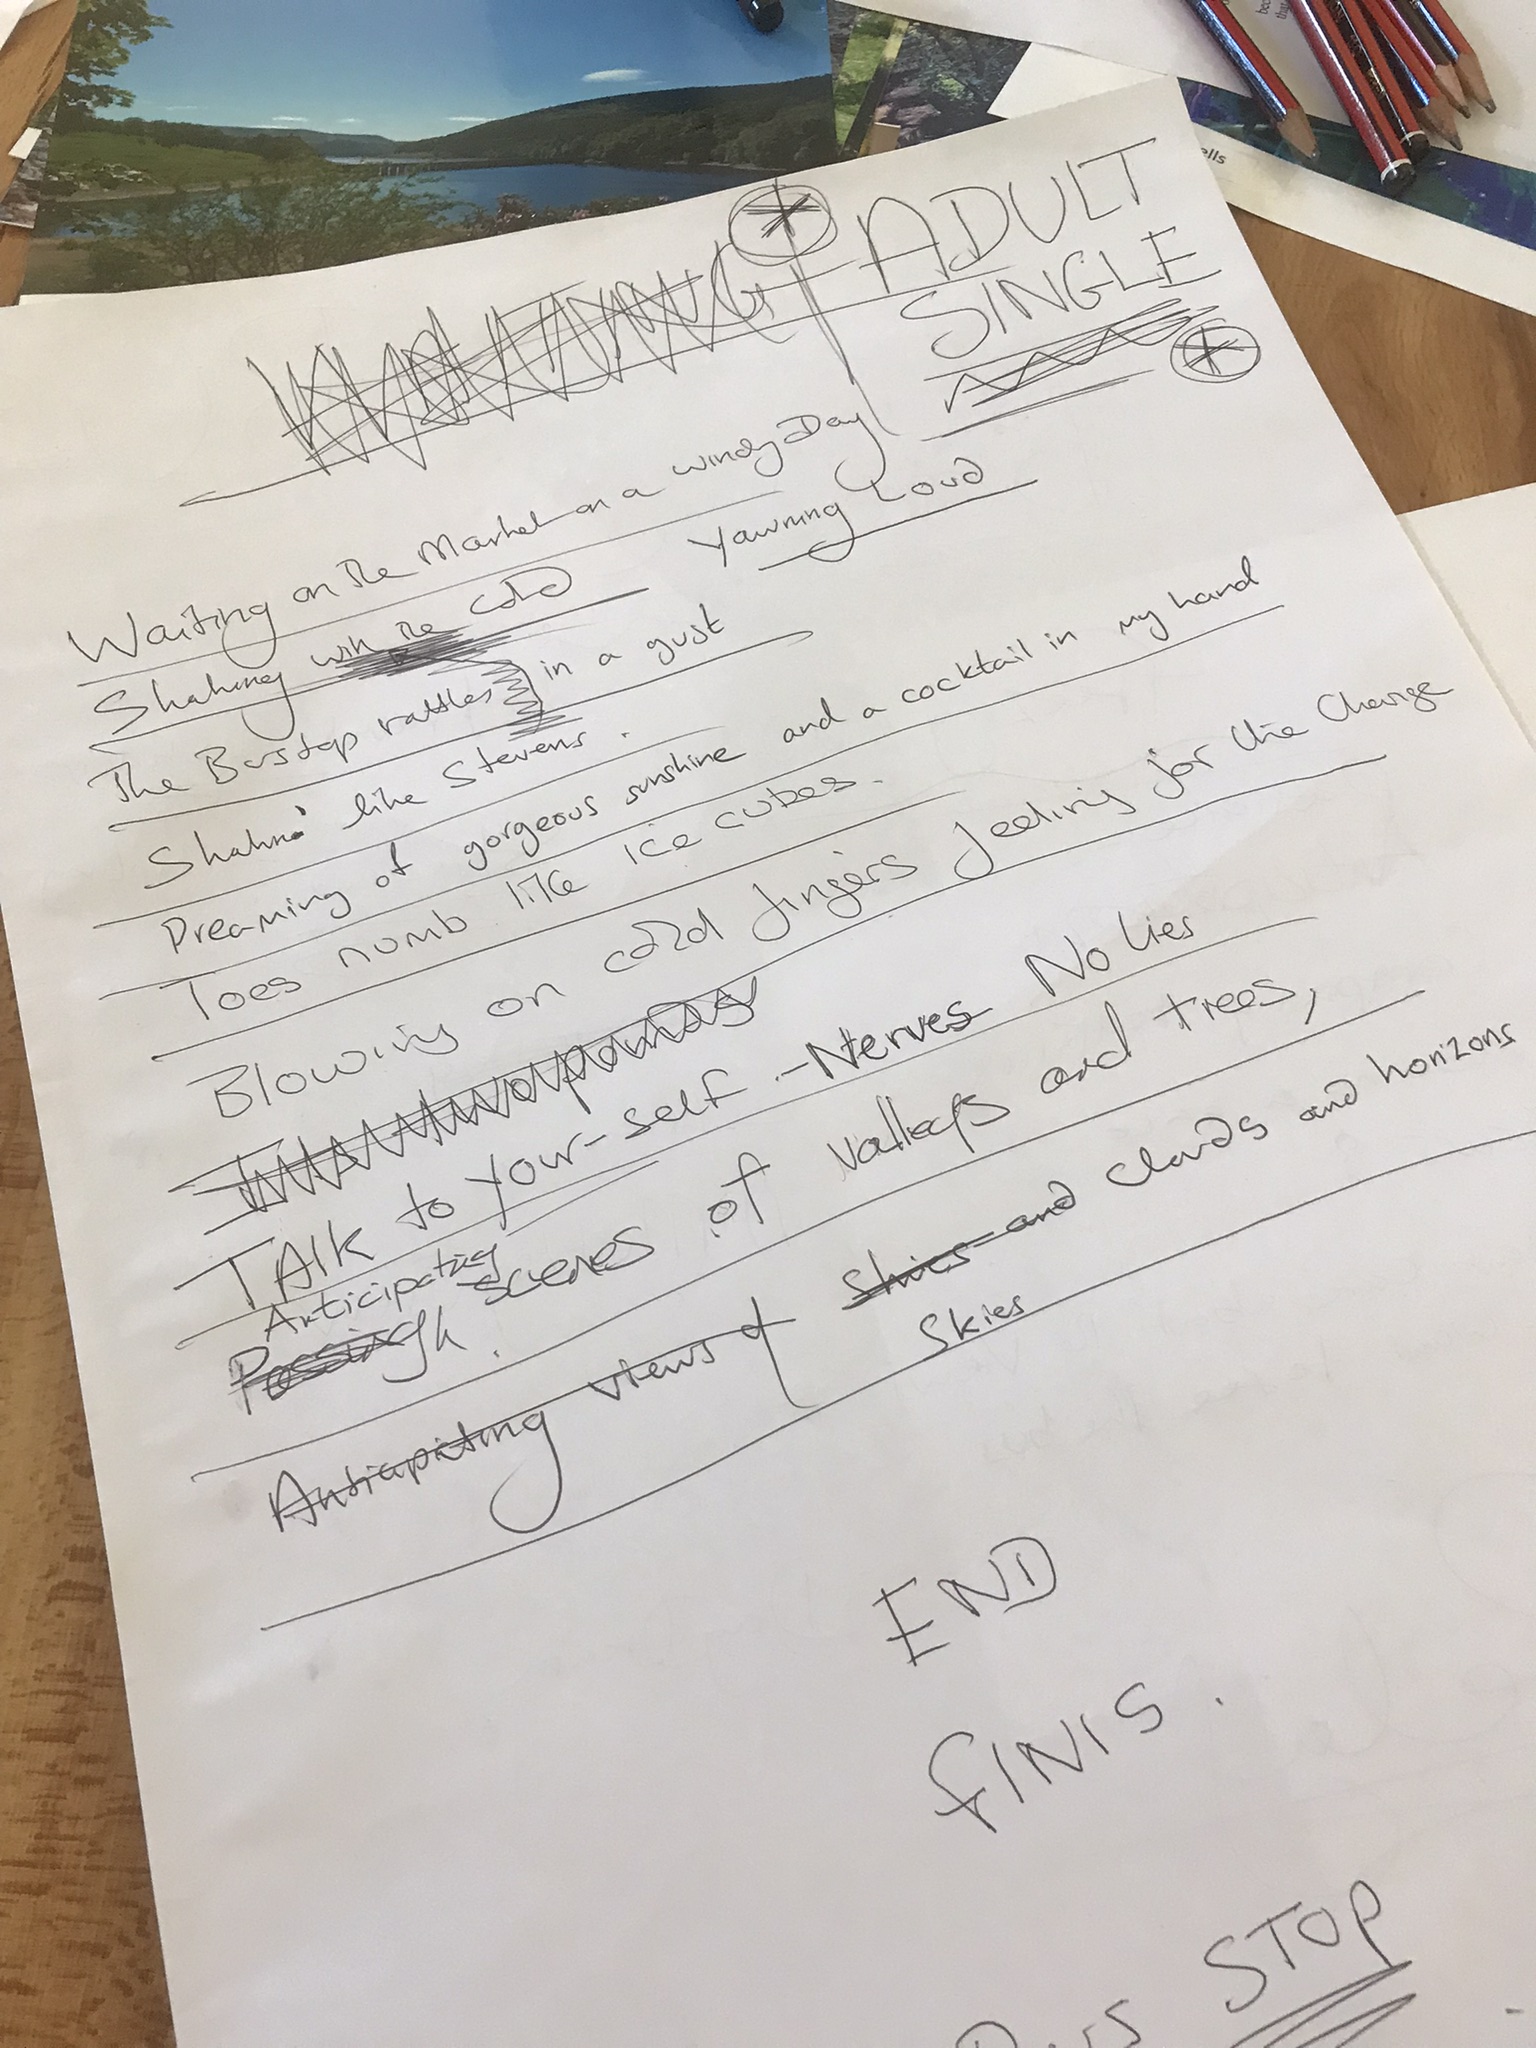 ells
ADULT
SINGLE
Waiting on the Market on a windy Day
Shaking with the cold Yawning Loud
The Busstop rattles in a gust
Shakin' like Stevens.
Dreaming of gorgeous sunshine and a cocktail in my hand
Toes numb like ice cubes.
Blowing on cold fingers feeling for the change
TALK to your-self - Nerves No Lies
Anticipating
scenes of valleys and trees,
Anticipating views of skies and clouds and horizons
Skies
END
FINIS.
Bus STOP